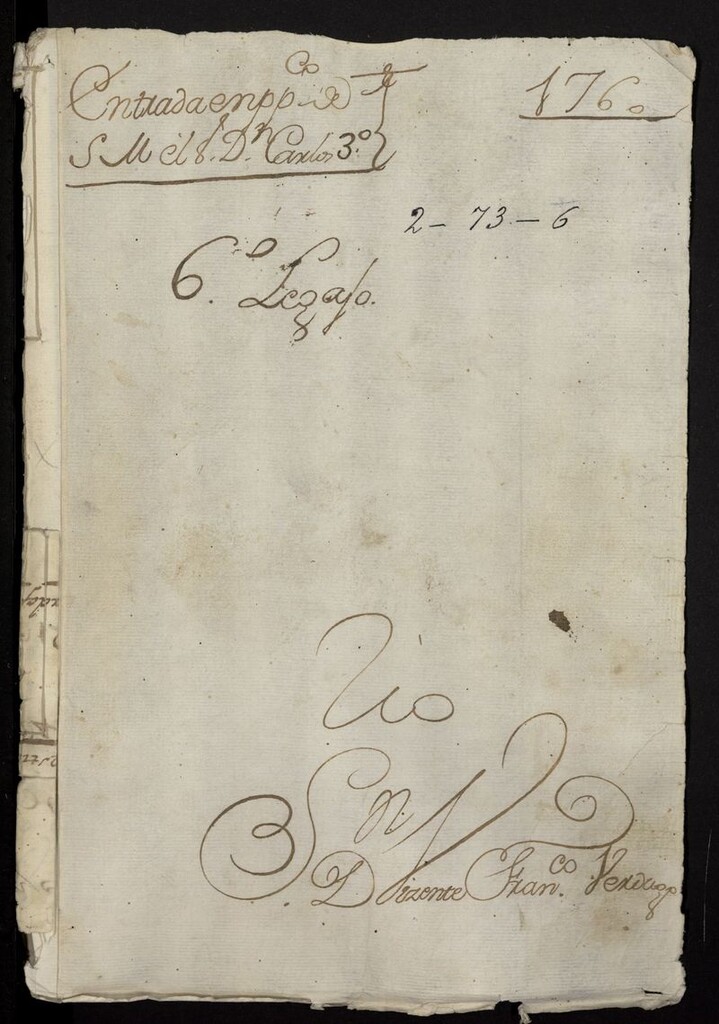 Entrada en pp.co de
S M el S. Dn Carlos 3.º
1760
2 - 73 - 6
6.º Legajo.
Sno
Sn
D Vizente Fran.co Verdugo